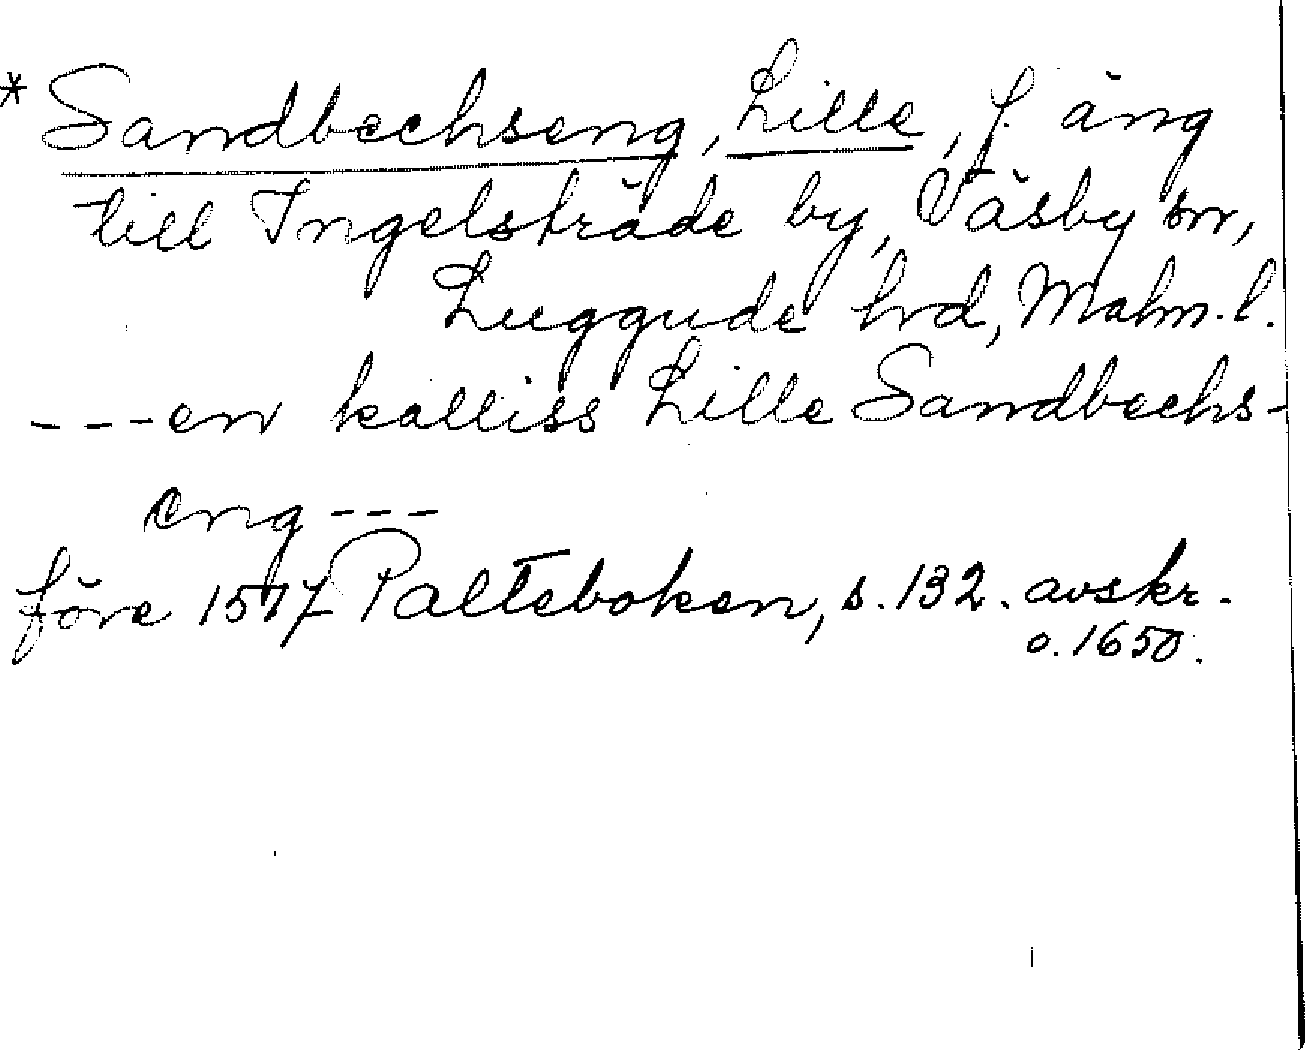 * Sandbechseng, Lille, f. äng
till Ingelsträde by, Väsby sn,
Luggude hrd, Malm. l.
---en kalliss Lille Sandbechs-
eng ---
före 1517 Palteboken, s. 132. avskr.
o. 1650.